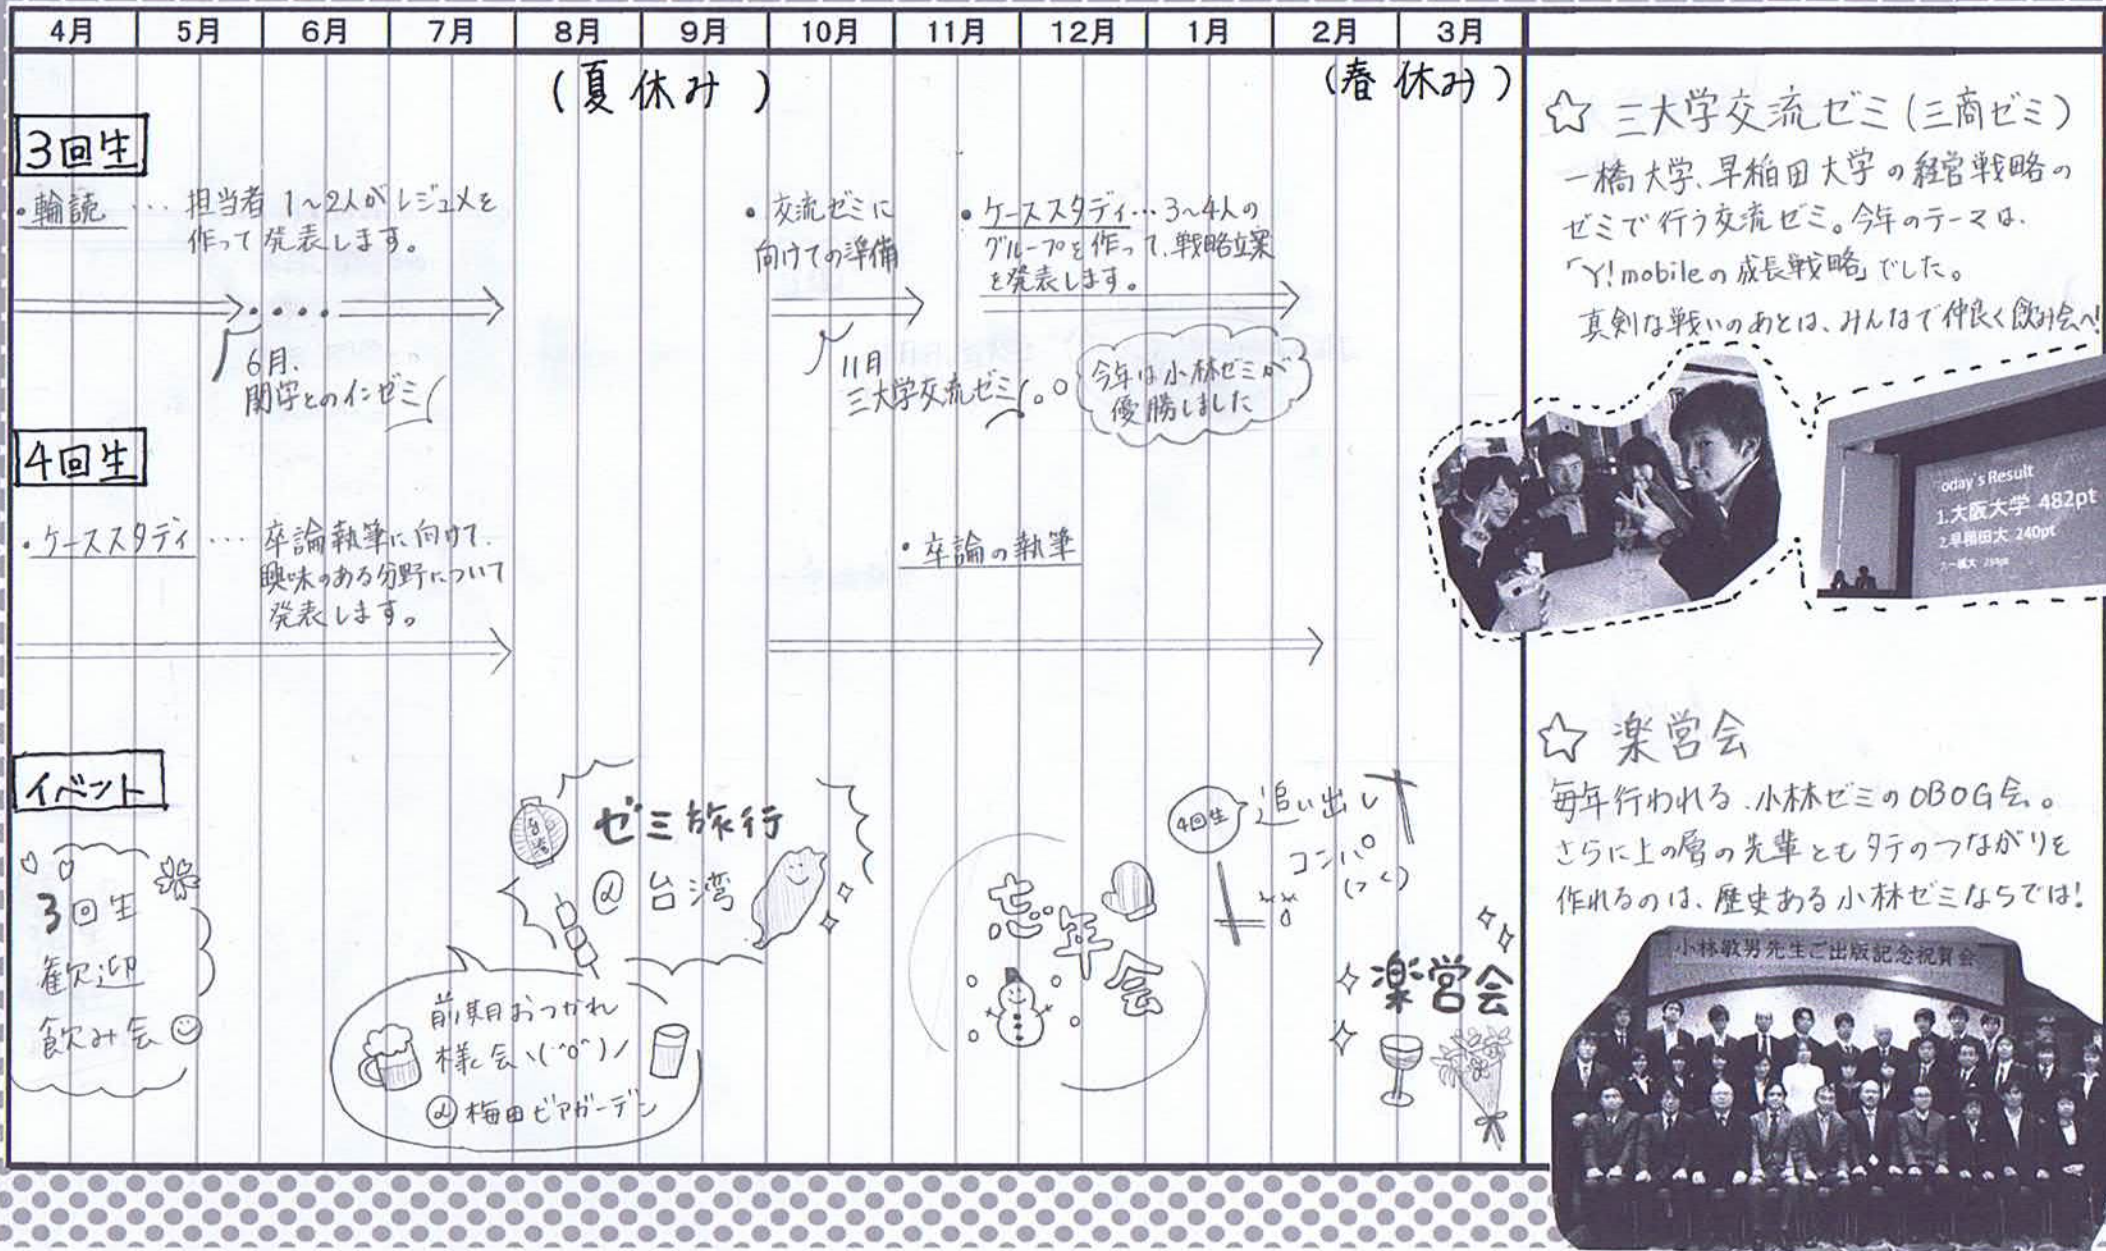 4月 5月 6月 7月 8月 9月 10月 11月 12月 1月 2月 3月
(夏休み)
(春休み)
3回生
・輪読 … 担当者 1〜2人がレジュメを
作って発表します。
6月.
関学とのインゼミ
・交流ゼミに
向けての準備
11月
三大学交流ゼミ
・ケーススタディ…3〜4人の
グループを作って、戦略立案
を発表します。
今年は小林ゼミが
優勝しました
4回生
・ケーススタディ … 卒論執筆に向けて、
興味のある分野について
発表します。
・卒論の執筆
イベント
3回生
歓迎
飲み会
台湾
ゼミ旅行
@台湾
前期おつかれ
様会ヽ(^o^)ノ
@梅田ビアガーデン
忘年会
4回生
追い出し
コンパ
(つく)
楽営会
☆ 三大学交流ゼミ(三商ゼミ)
一橋大学、早稲田大学の経営戦略の
ゼミで行う交流ゼミ。今年のテーマは、
「Y!mobileの成長戦略」でした。
真剣な戦いのあとは、みんなで仲良く飲み会へ!
oday's Result
1.大阪大学 482pt
2.早稲田大 240pt
☆ 楽営会
毎年行われる、小林ゼミのOBOG会。
さらに上の層の先輩ともタテのつながりを
作れるのは、歴史ある小林ゼミならでは!
小林敏男先生ご出版記念祝賀会